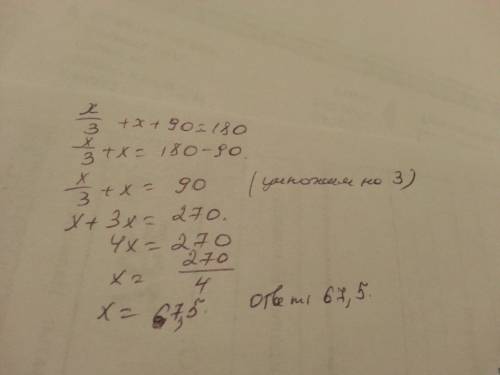 x/3 + x + 90 = 180
x/3 + x = 180 - 90.
x/3 + x = 90 (умножим на 3)
x + 3x = 270.
4x = 270
x = 270/4
x = 67,5. Ответ: 67,5.